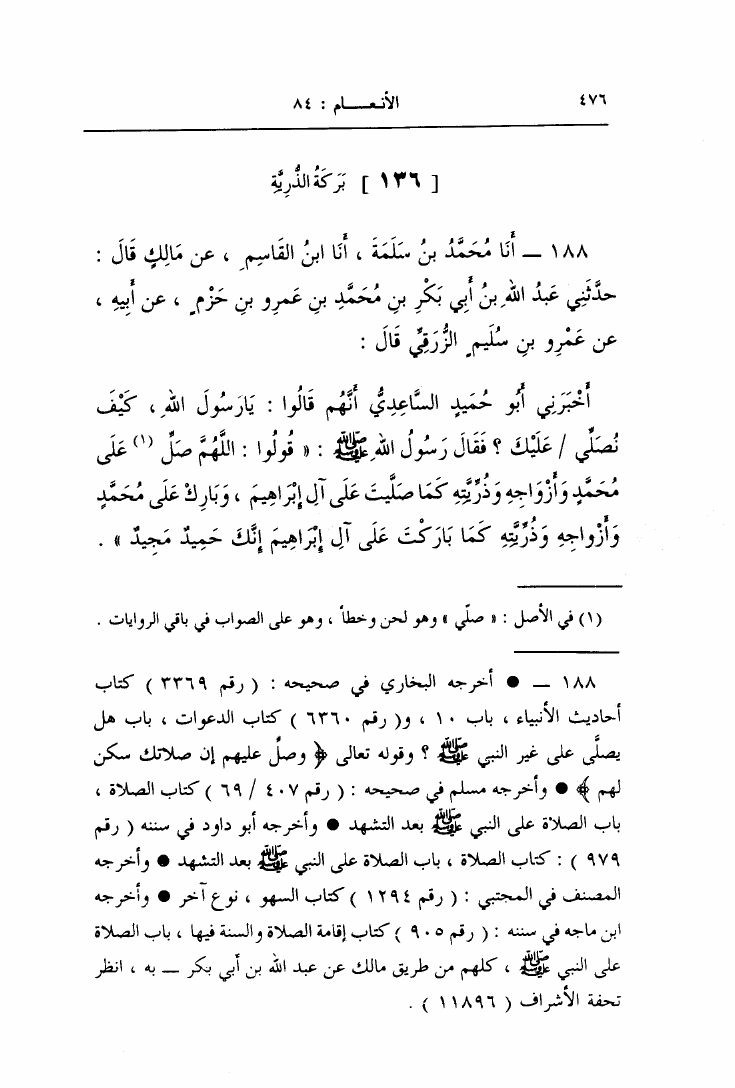 ٤٧٦ الأنعــــام : ٨٤
[ ١٣٦ ] بَرَكَةُ الذُّرِيَّةِ
١٨٨ — أَنَا مُحَمَّدُ بنُ سَلَمَةَ ، أَنَا ابنُ القَاسِمِ ، عن مَالِكٍ قَالَ :
حدَّثَنِي عَبدُ اللهِ بنُ أَبِي بَكْرِ بنِ مُحَمَّدِ بنِ عَمرِو بنِ حَزْمٍ ، عن أَبِيهِ ،
عن عَمْرِو بنِ سُلَيمٍ الزُّرَقِيِّ قَالَ :
أَخْبَرَنِي أَبُو حُمَيدٍ السَّاعِدِيُّ أَنَّهُم قَالُوا : يَارَسُولَ اللهِ ، كَيْفَ
نُصَلِّي / عَلَيْكَ ؟ فَقَالَ رَسُولُ اللهِ ﷺ : « قُولُوا : اللَّهُمَّ صَلِّ (١) عَلَى
مُحَمَّدٍ وَأَزْوَاجِهِ وَذُرِّيَّتِهِ كَمَا صَلَّيتَ عَلَى آلِ إِبْرَاهِيمَ ، وَبَارِكْ عَلَى مُحَمَّدٍ
وَأَزْواجِهِ وَذُرِّيَّتِهِ كَمَا بَارَكْتَ عَلَى آلِ إِبْرَاهِيمَ إِنَّكَ حَمِيدٌ مَجِيدٌ » .
(١) في الأصل : « صلّي » وهو لحن وخطأ ، وهو على الصواب في باقي الروايات .
١٨٨ — ● أخرجه البخاري في صحيحه : ( رقم ٣٣٦٩ ) كتاب
أحاديث الأنبياء ، باب ١٠ ، و( رقم ٦٣٦٠ ) كتاب الدعوات ، باب هل
يصلَّى على غير النبي ﷺ ؟ وقوله تعالى ﴿ وصلِّ عليهم إن صلاتك سكن
لهم ﴾ ● وأخرجه مسلم في صحيحه : ( رقم ٤٠٧ / ٦٩ ) كتاب الصلاة ،
باب الصلاة على النبي ﷺ بعد التشهد ● وأخرجه أبو داود في سننه ( رقم
٩٧٩ ) : كتاب الصلاة ، باب الصلاة على النبي ﷺ بعد التشهد ● وأخرجه
المصنف في المجتبي : ( رقم ١٢٩٤ ) كتاب السهو ، نوع آخر ● وأخرجه
ابن ماجه في سننه : ( رقم ٩٠٥ ) كتاب إقامة الصلاة والسنة فيها ، باب الصلاة
على النبي ﷺ ، كلهم من طريق مالك عن عبد الله بن أبي بكر — به ، انظر
تحفة الأشراف ( ١١٨٩٦ ) .